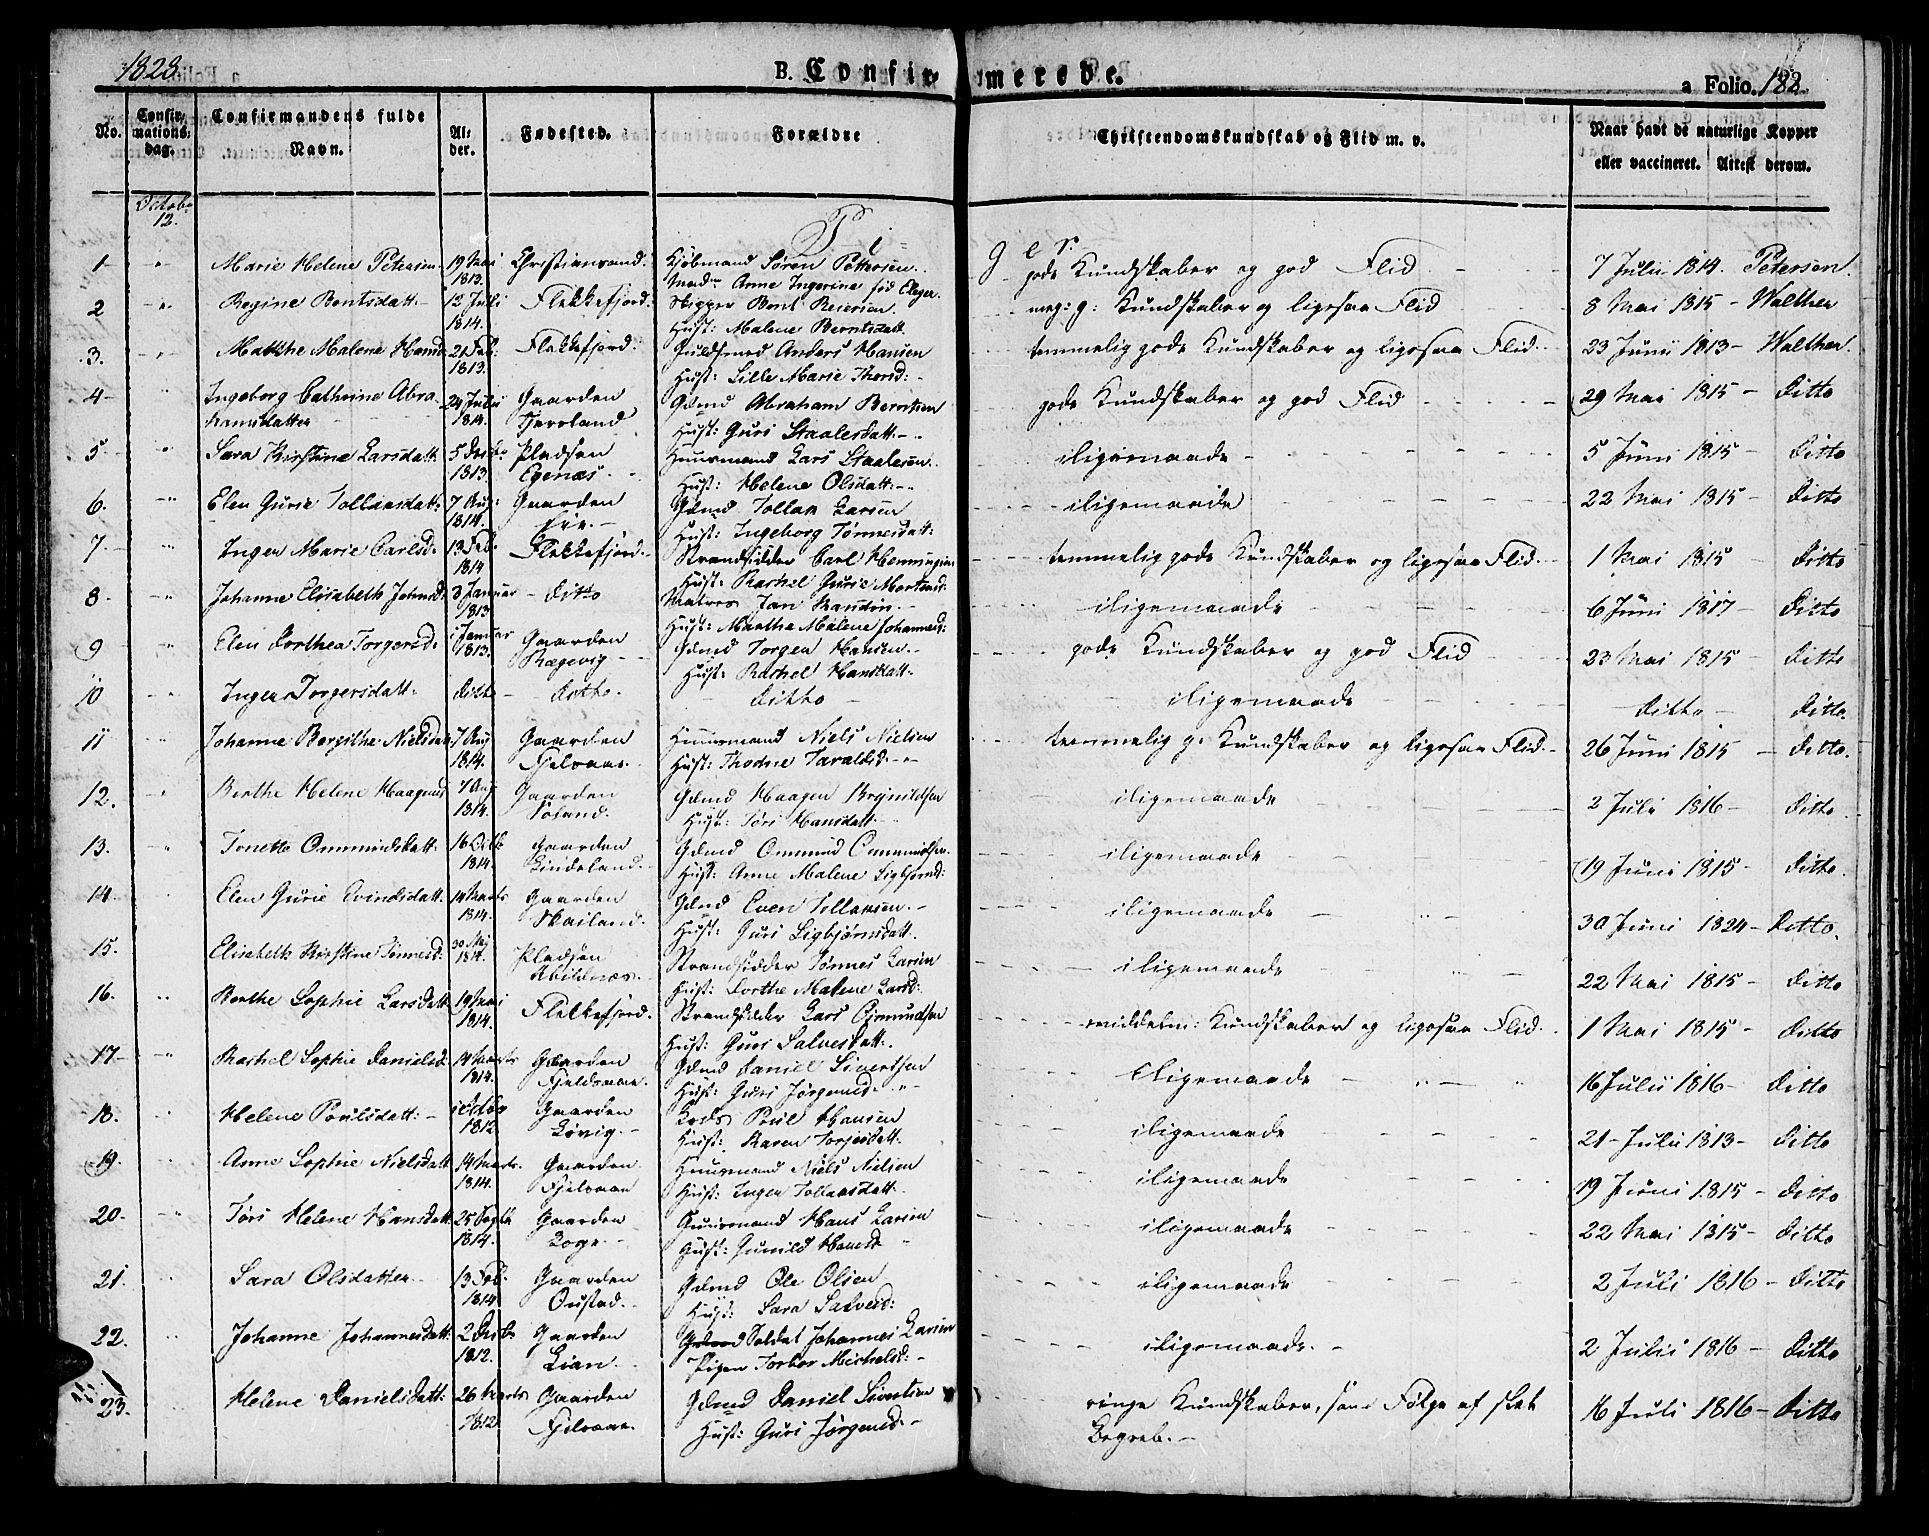 1828.
B. Confirmerede.
a Folio. 182
No.
Confirmations: dag.
Confirmandens fulde Navn.
Alder.
Fødested.
Forældre
Christendomskundskab og Flid m. v.
Naar havt de naturlige Kopper eller vaccineret. Attest derom.
Octobr 12.
Piger.
1 Marie Helene Petersen 19 Mai 1813. Christiansand. Kjøbmand Søren Pettersen. Mad: Anne Ingerine fød gode Kundskaber og god Flid 7 Julii 1814. Petersen.
2 Regine Bentsdatt: 12 Julii 1814. Flekkefjord. Skipper Bent Reiersen. Hust: Malene Berntsdatt. meg: g: Kundskaber og ligesaa Flid 8 Mai 1815 Walther
3. Malene Hansd 21 Feb: 1813. Flekkefjord. Guldsmed Anders Hansen Hust: Lille Marie Thorsd: temmelig gode Kundskaber og ligesaa Flid. 23 Junii 1813 Walther.
4 Ingeborg Cathrine Abrahamsdatter 24 Julii 1814. Gaarden Gdmd Abraham Berntsen Hust: Guri Staalesdatt. gode Kundskaber og god Flid 29 Mai 1815 Ditto
5 Sara Kirstine Larsdatt: 5 Decbr 1813. Pladsen Egenæs Huusmand Lars Staalesen. Hust: Helene Olsdatt: iligemaade 5 Juni 1815 Ditto
6. Elen Gurie Tollaksdatt: 7 Aug: 1814. Gaarden Gdmd Tollak Larsen Hust: Ingeborg Tønnesdatt: iligemaade 22 Mai 1815 Ditto
7. Inger Marie Carlsd: 13 Feb. 1814 Flekkefjord Strandsidder Carl Henningsen Hust: Rachel Gurie temmelig gode Kundskaber og ligesaa Flid. 1 Mai 1815 Ditto
8. Johanne Elisabeth Jahnsd: 3 Januar 1813 Ditto Matros Jan Hust: Martha Malene Johannesd: iligemaade 6 Juni 1817 Ditto
9 Elen Dorthea Torgersd. Januar 1813. Gaarden Rægevig Gdmd Torger Hansen. Hust: Rachel Hansdatt. gode Kundskaber og god Flid 23 Mai 1815 Ditto
10 Inger Torgersdatt: ditto ditto. ditto iligemaade ditto Ditto.
11 Johanne Bergithe Nielsdatt 7 Aug 1814. Gaarden Fjelsaae. Huusmand Niels Nielsen Hust: Thodne Taraldsd. temmelig g: Kundskaber og ligesaa Flid. 26 Juni 1815 Ditto.
12. Berthe Helene Haagensd 7 Aug 1814. Gaarden Gdmd Haagen Brynildsen Hust: Tøri Hansdatt. iligemaade 2 Juli 1816 Ditto
13. Tonette Ommundsdatt: 16 1814. Gaarden Lindeland. Gdmd Ommund Ommundsen. Hust: Anne Malene Sigbjørnsd: iligemaade 19 Juni 1815 Ditto.
14. Elen Gurie Evindsdatt. 14 Marts 1814. Gaarden Gdmd Even Tollaksen. Hust: Guri Sigbjørnsdatt. iligemaade 30 Juni 1824 Ditto.
15. Elisabeth Kirstine Tønnesd: 30 Maj 1814. Pladsen Abildnæs. Strandsidder Tønnes Larsen Hust: Dorthe Malene Larsd: iligemaade 22 Mai 1815 Ditto
16. Berthe Sophie Larsdatt 19 Mai 1814. Flekkefjord. Strandsidder Lars Hust: Guri Salvesdatt. middelm: Kundskaber og ligesaa Flid. 1 Mai 1815 Ditto
17 Rachel Sophie Danielsd. 14 Marts 1814. Gaarden Fjeldsaae. Gdmd Daniel Sivertsen Hust: Guri Jørgensd. iligemaade 16 Julii 1816 Ditto
18. Helene Poulsdatt: Octbr 1812 Gaarden Løvig. Lods Poul Hansen Hust: Karen Torjesdatt. iligemaade 21 Julii 1813 Ditto
19. Anne Sophie Nielsdatt 14 Marts. 1814. Gaarden Fjelsaae Huusmand Niels Nielsen Hust: Inger Tollaksdatt. iligemaade 19 Juni 1815 Ditto
20. Tøri Helene Hansdatt. 25 Septbr 1814. Gaarden Loge. Huusmand Hans Larsen Hust: Gunild Hansd: iligemaade 22 Mai 1815 Ditto
21. Sara Olsdatter 13 Feb. 1814 Gaarden Oustad. Gdmd Ole Olsen Hust: Sara Salvesd: iligemaade 2 Juli 1816 Ditto
22. Johanne Johannesdatt: 2 Decbr 1812. Gaarden Lian. Soldat Johannes Larsen Pigen Torbor Michelsd: iligemaade. 2 Julii 1816 Ditto
23. Helene Danielsdatt: 26 Marts 1812 Gaarden Fjelsaae. Gdmd Daniel Sivertsen Hust: Guri Jørgensd. ringe Kundskaber, som Følge af slet Begreb. 16 Juli 1816 Ditto